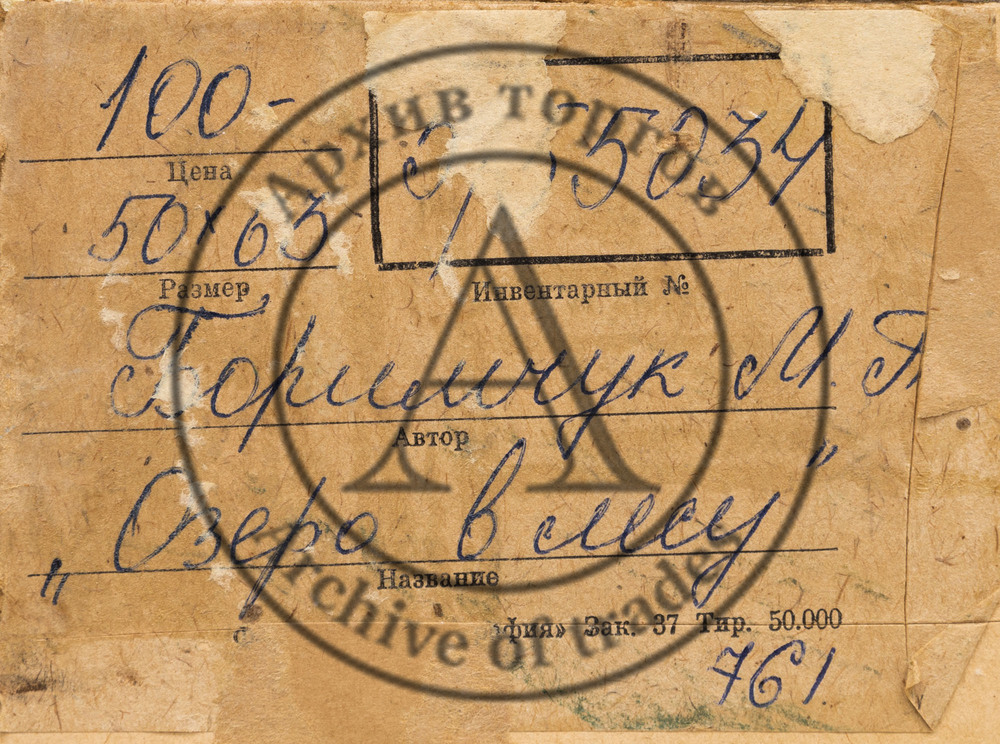 100-
Цена
50×63
Размер
5034
Инвентарный №
Боримчук М. П.
Автор
„Озеро в лесу"
Название
фия» Зак. 37 Тир. 50.000
761
Архив торгов
Archive of trade
A